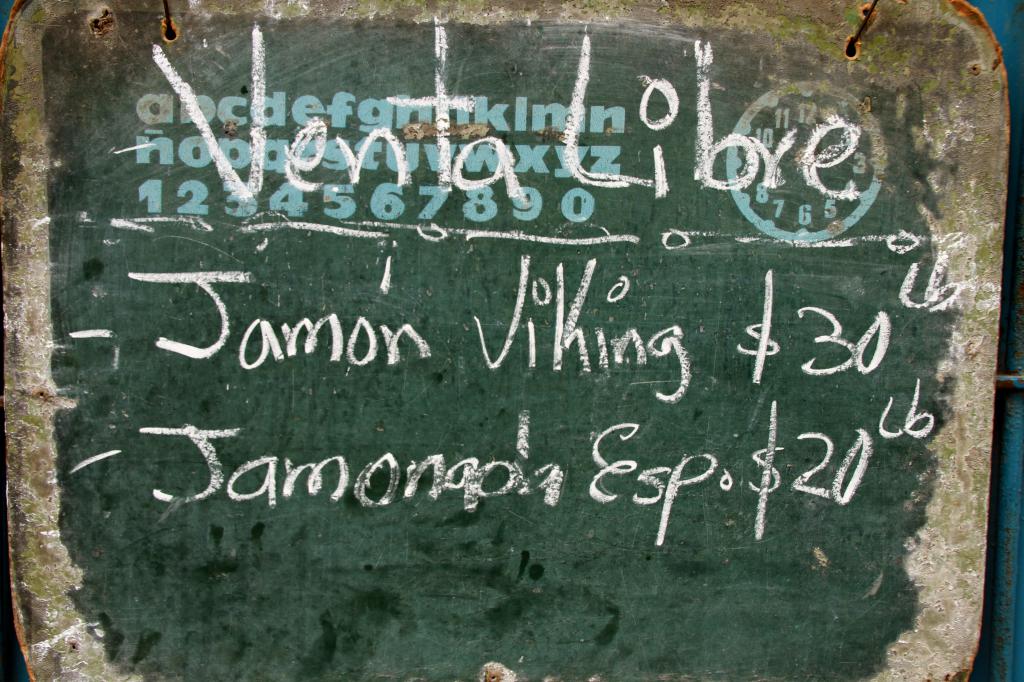 abcdefghijklmn
ñopqrstuvwxyz
1 2 3 4 5 6 7 8 9 0
Venta Libre
- Jamón Viking $30 Lb
- Jamonada Esp. $20 Lb